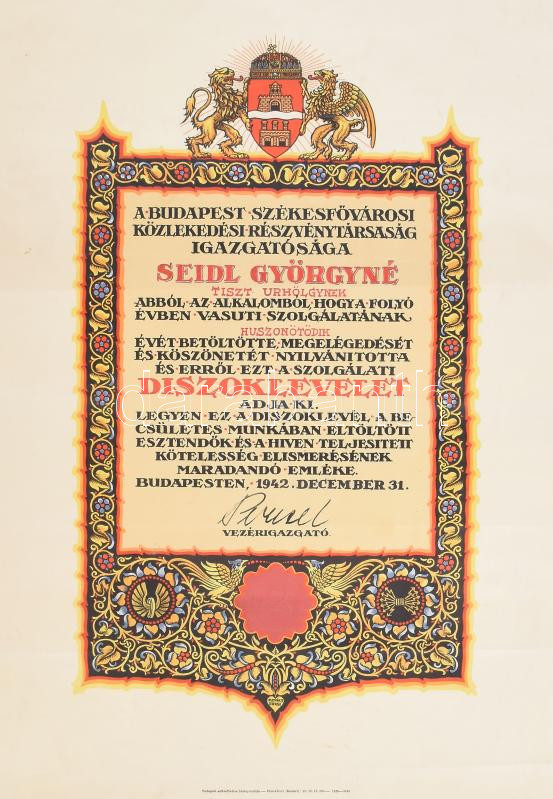 A·BUDAPEST·SZÉKESFŐVÁROSI
KÖZLEKEDÉSI·RÉSZVÉNYTÁRSASÁG
IGAZGATÓSÁGA
SEIDL GYÖRGYNÉ
TISZT URHÖLGYNEK
ABBÓL·AZ·ALKALOMBÓL·HOGY·A·FOLYÓ
ÉVBEN·VASUTI·SZOLGÁLATÁNAK
HUSZONÖTÖDIK
ÉVÉT·BETÖLTÖTTE, MEGELÉGEDÉSÉT
ÉS·KÖSZÖNETÉT·NYILVÁNITOTTA
ÉS·ERRŐL·EZT·A·SZOLGÁLATI
DISZOKLEVELET
ADJA·KI.
LEGYEN·EZ·A·DISZOKLEVÉL·A·BE-
CSÜLETES·MUNKÁBAN·ELTÖLTÖTT
ESZTENDŐK·ÉS·A·HIVEN·TELJESITETT
KÖTELESSÉG·ELISMERÉSÉNEK
MARADANDÓ·EMLÉKE.
BUDAPESTEN, 1942. DECEMBER 31.
VEZÉRIGAZGATÓ